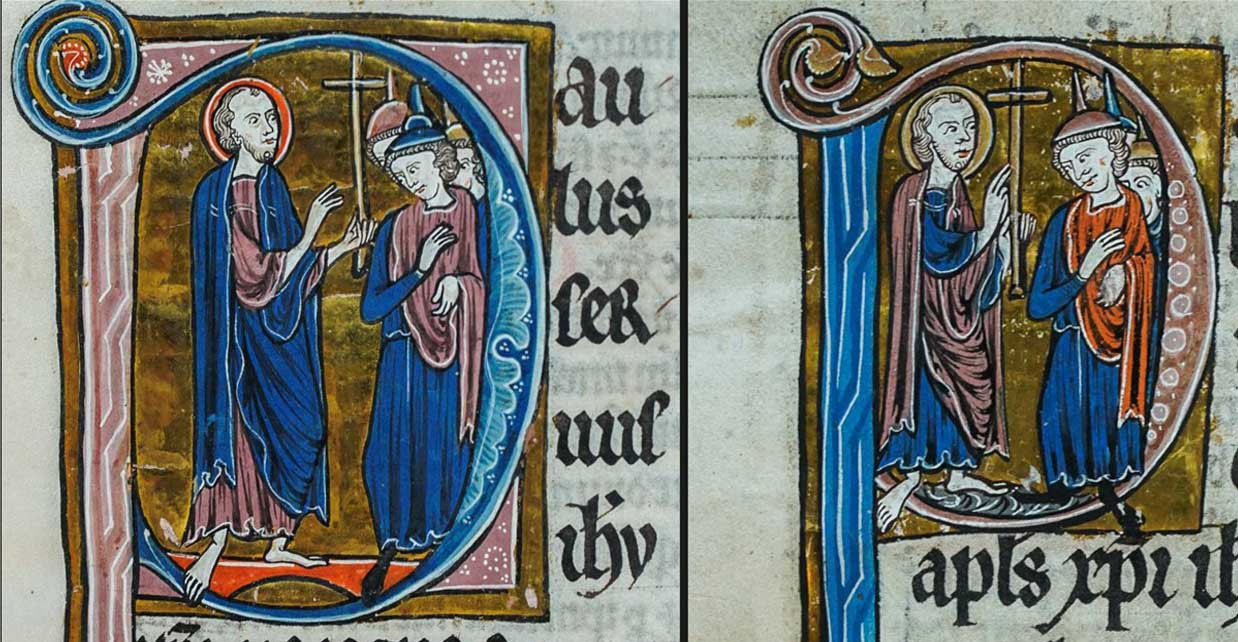 P
au
lus
ser
uus
ihu
P
apls xpi ih